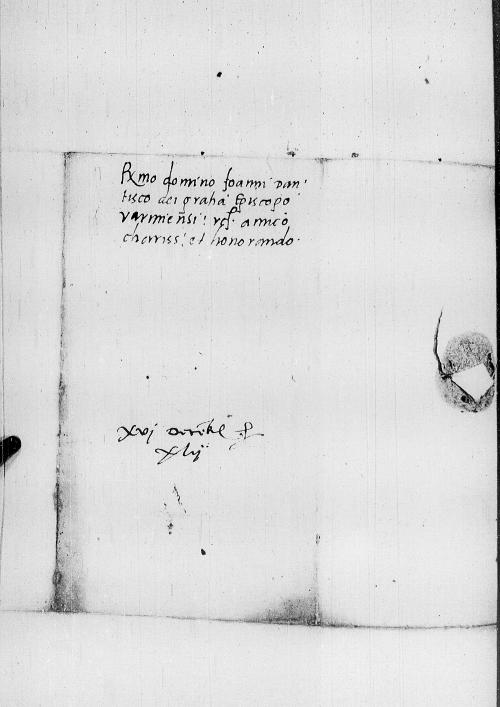 Rx̃mo domino Joanni Dan
tisco dei gratia Episcopo
varmieñsi: rc̃. amico
chariss: et honorando.
xvj Decẽb
xlij